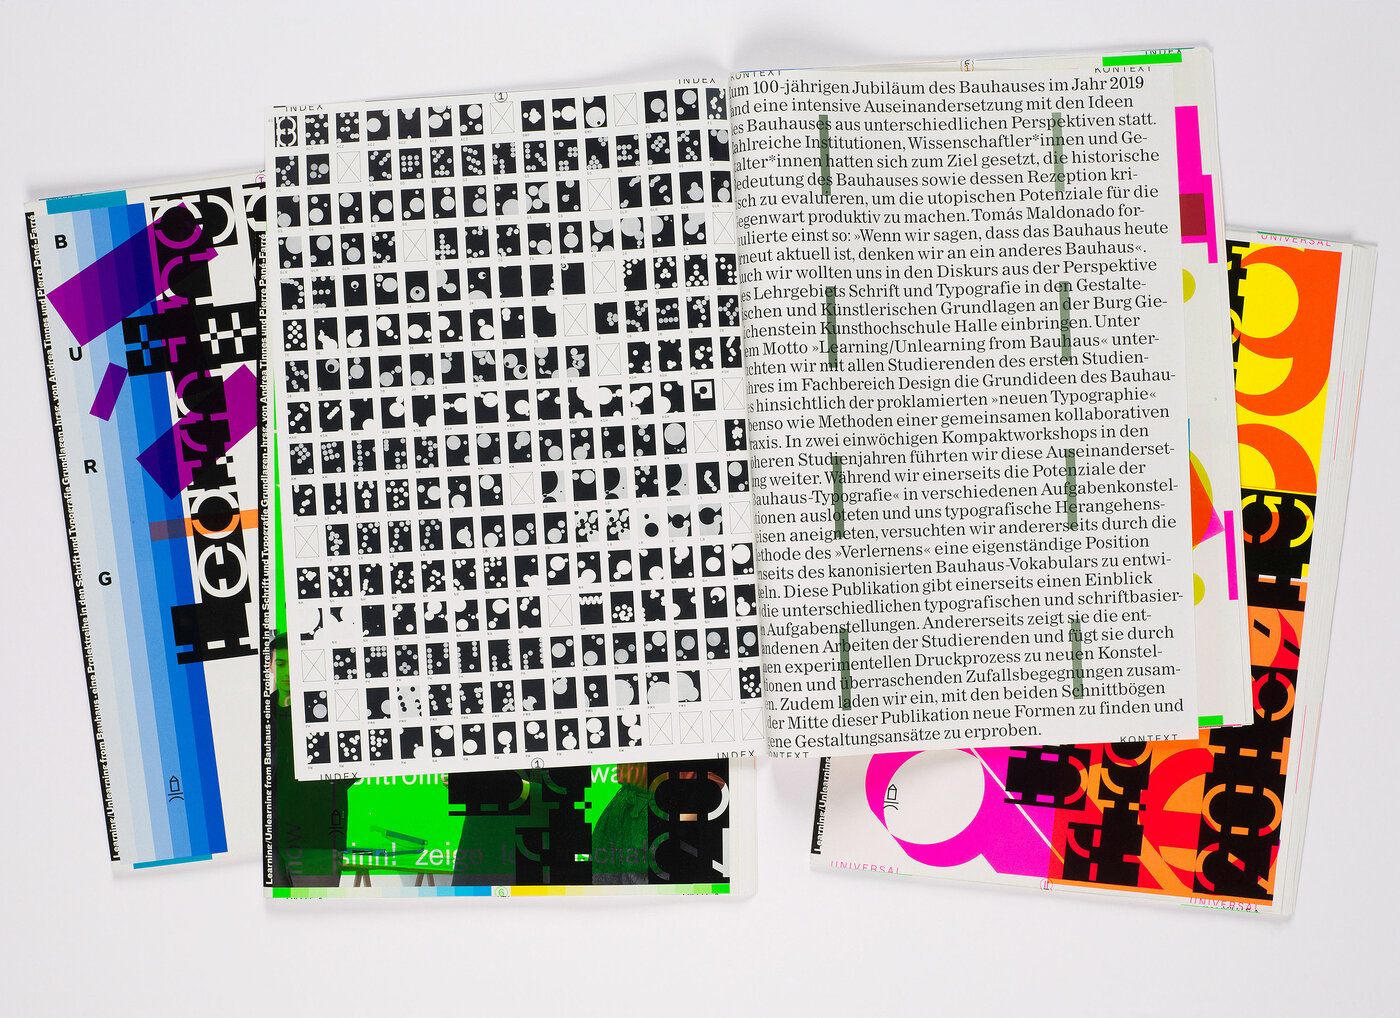 INDEX
INDEX
1
INDEX
INDEX
1
KONTEXT
KONTEXT
INDEX
zum 100-jährigen Jubiläum des Bauhauses im Jahr 2019
and eine intensive Auseinandersetzung mit den Ideen
es Bauhauses aus unterschiedlichen Perspektiven statt.
ahlreiche Institutionen, Wissenschaftler*innen und Ge-
alter*innen hatten sich zum Ziel gesetzt, die historische
edeutung des Bauhauses sowie dessen Rezeption kri-
isch zu evaluieren, um die utopischen Potenziale für die
egenwart produktiv zu machen. Tomás Maldonado for-
ulierte einst so: »Wenn wir sagen, dass das Bauhaus heute
rneut aktuell ist, denken wir an ein anderes Bauhaus«.
uch wir wollten uns in den Diskurs aus der Perspektive
es Lehrgebiets Schrift und Typografie in den Gestalte-
ischen und Künstlerischen Grundlagen an der Burg Gie-
ichenstein Kunsthochschule Halle einbringen. Unter
em Motto »Learning/Unlearning from Bauhaus« unter-
ichten wir mit allen Studierenden des ersten Studien-
hres im Fachbereich Design die Grundideen des Bauhau-
s hinsichtlich der proklamierten »neuen Typographie«
benso wie Methoden einer gemeinsamen kollaborativen
raxis. In zwei einwöchigen Kompaktworkshops in den
heren Studienjahren führten wir diese Auseinanderset-
ng weiter. Während wir einerseits die Potenziale der
Bauhaus-Typografie« in verschiedenen Aufgabenkonstel-
tionen ausloteten und uns typografische Herangehens-
eisen aneigneten, versuchten wir andererseits durch die
ethode des »Verlernens« eine eigenständige Position
nseits des kanonisierten Bauhaus-Vokabulars zu entwi-
eln. Diese Publikation gibt einerseits einen Einblick
die unterschiedlichen typografischen und schriftbasier-
n Aufgabenstellungen. Andererseits zeigt sie die ent-
andenen Arbeiten der Studierenden und fügt sie durch
en experimentellen Druckprozess zu neuen Konstel-
tionen und überraschenden Zufallsbegegnungen zusam-
n. Zudem laden wir ein, mit den beiden Schnittbögen
der Mitte dieser Publikation neue Formen zu finden und
ene Gestaltungsansätze zu erproben.
KONTEXT
KONTEXT
B
U
R
G
Learning/Unlearning from Bauhaus - eine Projektreihe in den Schrift und Typografie Grundlagen - hrsg. von Andrea Tinnes und Pierre Pané-Farré
Learning/Unlearning from Bauhaus - eine Projektreihe in den Schrift und Typografie Grundlagen - hrsg. von Andrea Tinnes und Pierre Pané-Farré
sinn! zeige
6
UNIVERSAL
Learning/Unlearning
UNIVERSAL
UNIVERSAL